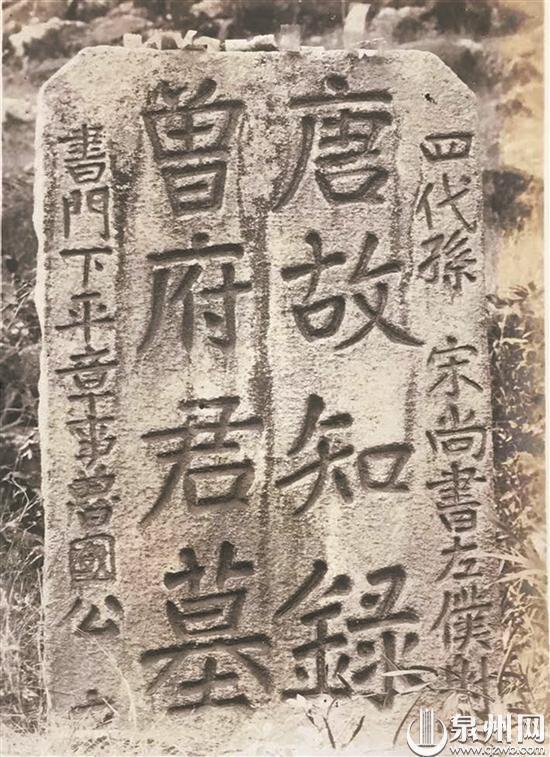 四代孫 宋尚書左僕射
唐故知錄
曾府君墓
書門下平章事魯國公
泉州网
www.qzwb.com